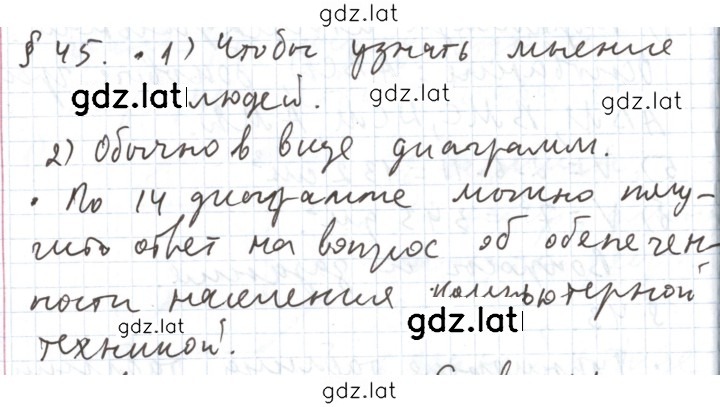 gdz.lat
§ 45. • 1) Чтобы узнать мнение
gdz.lat людей. gdz.lat gdz.lat
2) Обычно в виде диаграмм.
• По 14 диаграмме можно полу-
чить ответ на вопрос об обепечен-
ности населения компьютерной
gdz.lat gdz.lat
техникой.
gdz.lat